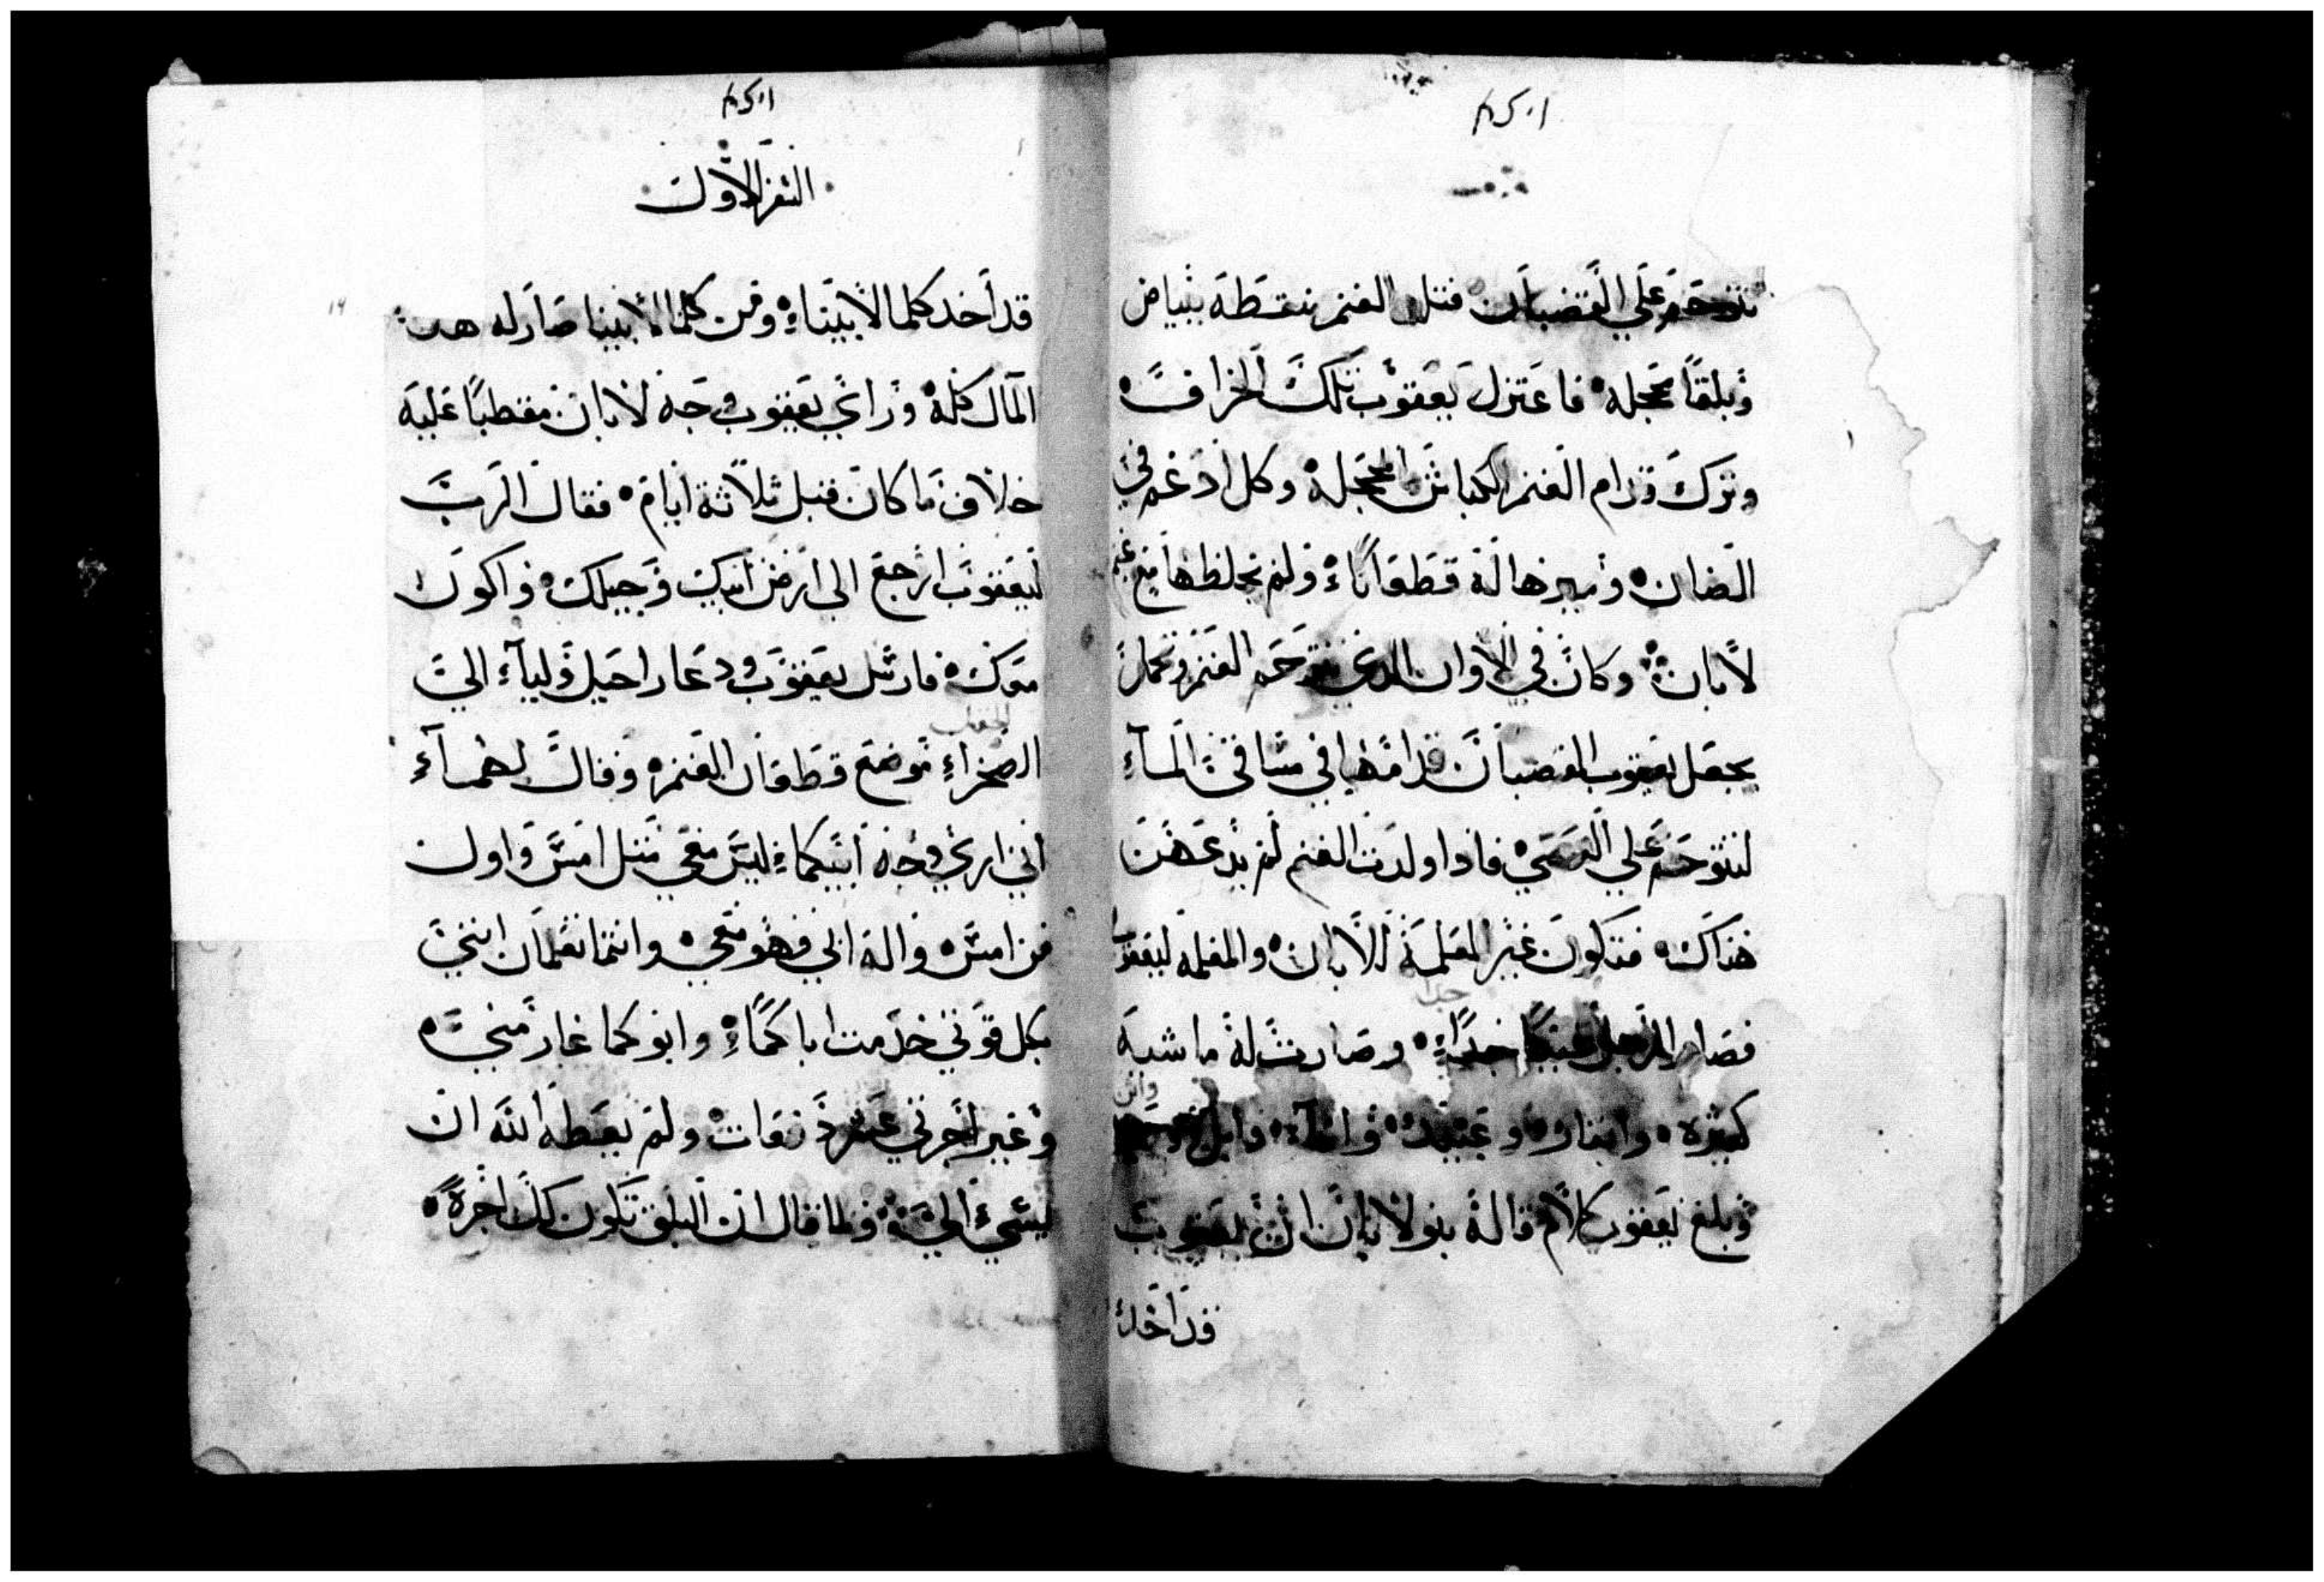 تتوحم علي القضبان فتلد الغنم منقطة ببياض
وبلقا محجله فاعتزل يعقوب تلك الخراف
وترك قدام الغنم الكباش المحجلة وكل ادغم في
الضان وميزها له قطعاناء ولم يخلطها مع غنم
لابان وكان في الاوان الدي تتوحم الغنم وتحمل
يجعل يعقوب القضبان قدامها في مساقي المآء
لتتوحم علي العصي فادا ولدت الغنم لم يدعهن
هناك فتكون غير المعلمة للابان والمعلمه ليعقوب
فصار الرجل غنيا جداء وصارت له ماشيه
جدا
كثيره واماء وعبيد وابل
وبلغ يعقوب كلام قاله بنو لابان ان يعقوب
قد اخد
السفر الاول
قد اخد كلما لابيناء ومن كلما لابينا صار له هدا
المال كله وراي يعقوب وجه لابان مقطبا عليه
خلاف ما كان قبل ثلاثة ايام فقال الرب
ليعقوب ارجع الي ارض ابيك وجيلك واكون
معك فارسل يعقوب ودعا راحيل وليآء الي
الصحراء موضع قطعان الغنم وقال لهمآء
اني اري وجه ابيكماء ليس معي مثل امس واول
من امس واله ابي فهو معي وانتما تعلمان انني
بكل قوتي خدمت اباكماء وابوكما غار مني
وغير اجرتي عشر دفعات ولم يعطه الله ان
يسي الي فلما قال ان البلق تكون لك اجرة